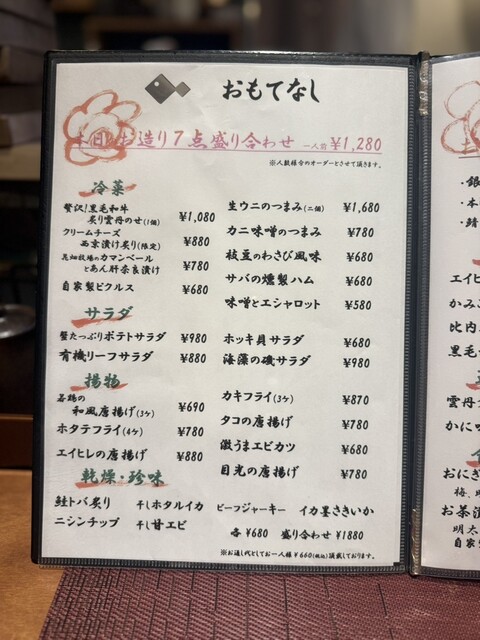 おもてなし
本日お造り7点盛り合わせ 一人前 ¥1,280
※人数様分のオーダーとさせて頂きます。
冷菜
贅沢!黒毛和牛
炙り雲丹のせ(1個) ¥1,080
クリームチーズ
西京漬け炙り(限定) ¥880
花畑牧場のカマンベール
とあん肝奈良漬け ¥780
自家製ピクルス ¥680
生ウニのつまみ(二個) ¥1,680
カニ味噌のつまみ ¥780
枝豆のわさび風味 ¥680
サバの燻製ハム ¥680
味噌とエシャロット ¥580
サラダ
蟹たっぷりポテトサラダ ¥980
有機リーフサラダ ¥880
ホッキ貝サラダ ¥680
海藻の磯サラダ ¥980
揚物
若鶏の
和風唐揚げ(3ケ) ¥690
ホタテフライ(4ケ) ¥780
エイヒレの唐揚げ ¥880
カキフライ(3ケ) ¥870
タコの唐揚げ ¥780
激うまエビカツ ¥680
目光の唐揚げ ¥780
乾燥・珍味
鮭トバ炙り 干しホタルイカ ビーフジャーキー イカ墨さきいか
ニシンチップ 干し甘エビ
各 ¥680 盛り合わせ ¥1880
※お通し代としてお一人様¥660(税込)頂戴しております。
・銀
・本
・鯖
エイヒ
かみこ
比内
黒毛
雲丹
かに味
おにぎ
梅、明
お茶漬
明太
自家